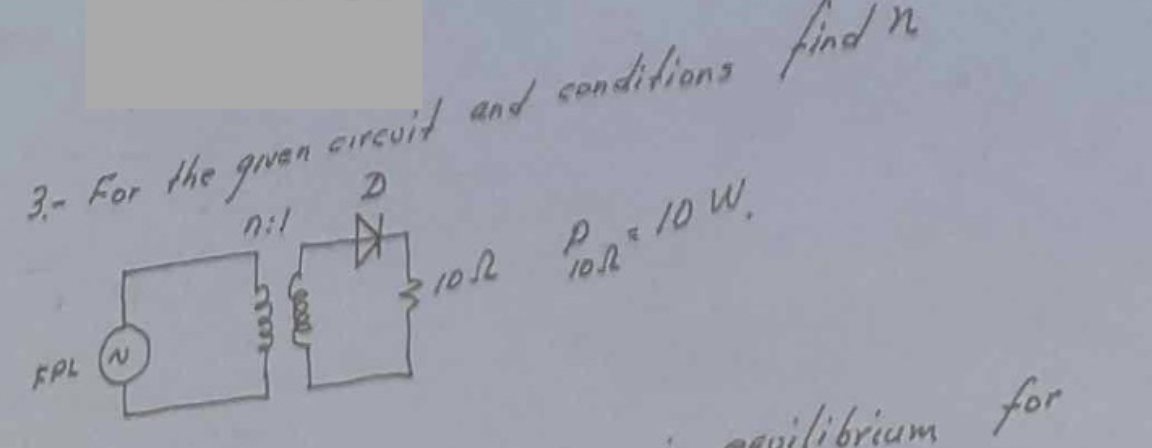 3.- For the given circuit and conditions find n
n:1
D
10Ω
P10Ω = 10 W.
FPL
N
equilibrium for